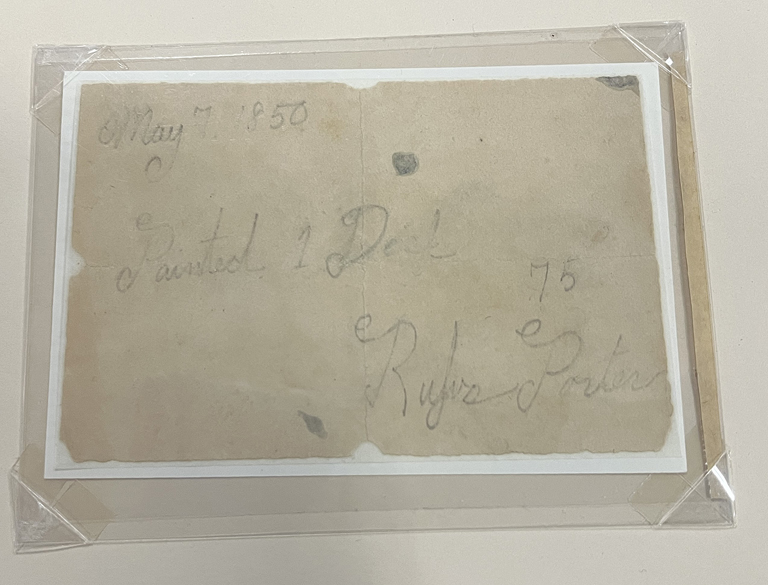 May 7. 1850
Painted 1 Desk
75
Rufus Porter